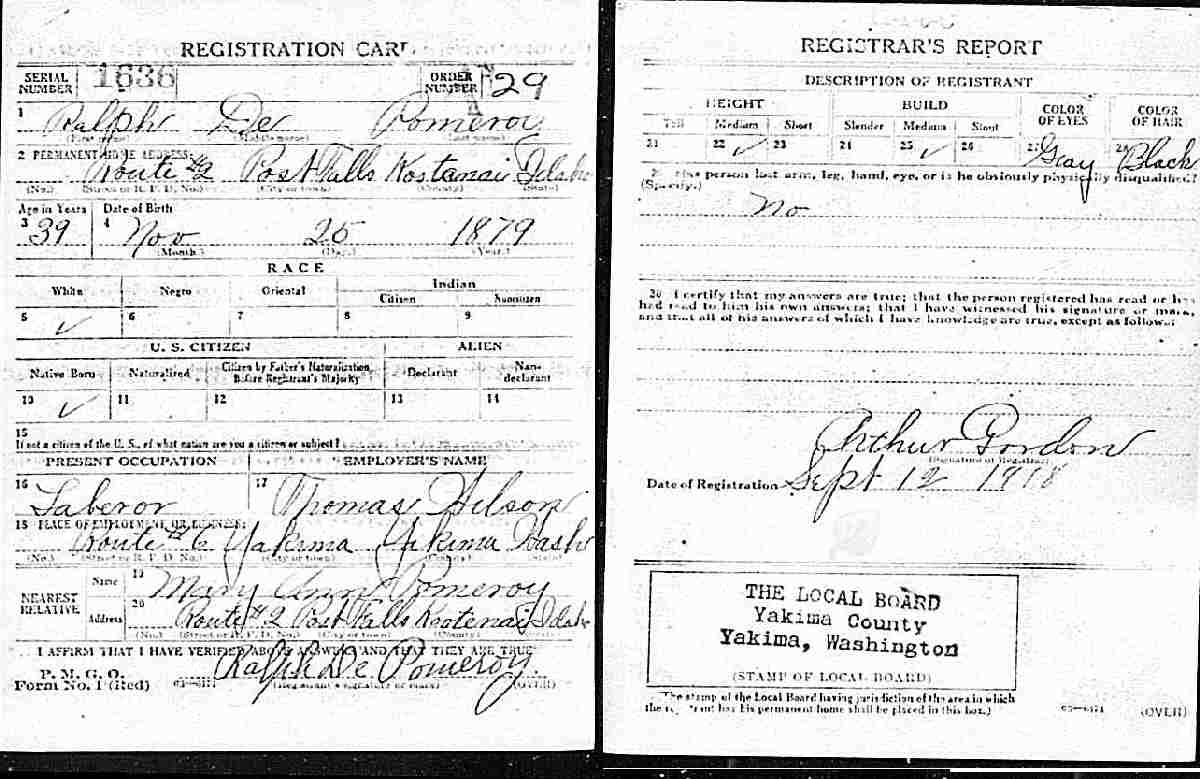 REGISTRATION CARD
SERIAL NUMBER 1636 ORDER NUMBER A 29
1 Ralph De Pomeroy
(First name) (Middle name) (Last name)
2 PERMANENT HOME ADDRESS:
Route #2 Post Falls Kostanai Idaho
(No.) (Street or R. F. D. No.) (City or town) (County) (State)
Age in Years Date of Birth
3 39 4 Nov 25 1879
(Month.) (Day.) (Year.)
RACE
White Negro Oriental Indian
Citizen Noncitizen
5 ✓ 6 7 8 9
U. S. CITIZEN ALIEN
Native Born Naturalized Citizen by Father's Naturalization Before Registrant's Majority Declarant Non-declarant
10 ✓ 11 12 13 14
15
If not a citizen of the U. S., of what nation are you a citizen or subject?
PRESENT OCCUPATION EMPLOYER'S NAME
16 Laberor 17 Thomas
18 PLACE OF EMPLOYMENT OR BUSINESS:
Route #6 Yakima Yakima Wash
(No.) (Street or R. F. D. No.) (City or town) (County) (State)
NEAREST RELATIVE
Name 19 Mary Ann Pomeroy
Address 20 Route #2 Post Falls Kootenai Idaho
(No.) (Street or R. F. D. No.) (City or town) (County) (State)
I AFFIRM THAT I HAVE VERIFIED ABOVE ANSWERS AND THAT THEY ARE TRUE
P. M. G. O.
Form No. 1 (Red) Ralph De Pomeroy
(Registrant's signature or mark) (OVER)
REGISTRAR'S REPORT
DESCRIPTION OF REGISTRANT
HEIGHT BUILD COLOR OF EYES COLOR OF HAIR
Tall Medium Short Slender Medium Stout
21 22 ✓ 23 24 25 ✓ 26 27 Gray 28 Black
29 Has person lost arm, leg, hand, eye, or is he obviously physically disqualified?
(Specify.)
No
30 I certify that my answers are true; that the person registered has read or has
had read to him his own answers; that I have witnessed his signature or mark,
and that all of his answers of which I have knowledge are true, except as follows:
Arthur Gordon
(Signature of Registrar)
Date of Registration Sept 12 1918
THE LOCAL BOARD
Yakima County
Yakima, Washington
(STAMP OF LOCAL BOARD)
(The stamp of the Local Board having jurisdiction of the area in which
the registrant has his permanent home shall be placed in this box.)
(OVER)